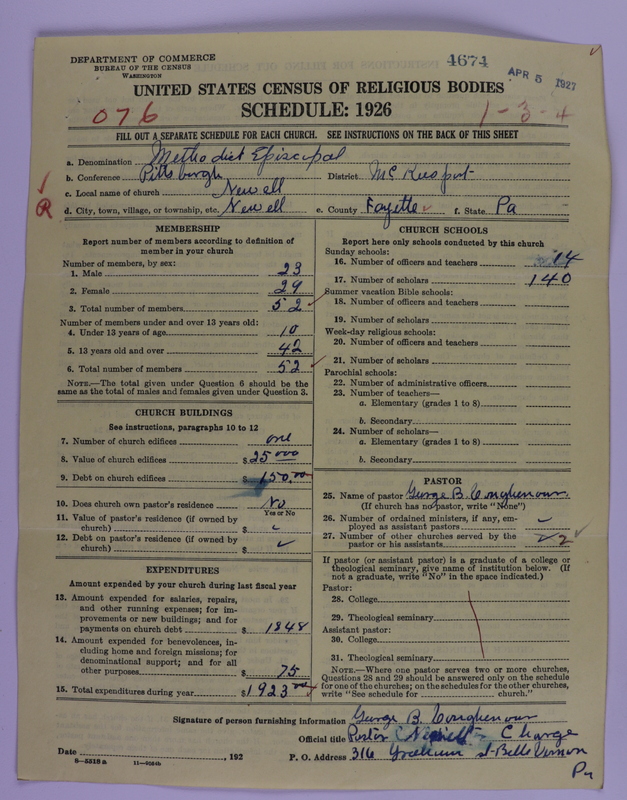 DEPARTMENT OF COMMERCE
BUREAU OF THE CENSUS
WASHINGTON
4674
APR 5 1927
UNITED STATES CENSUS OF RELIGIOUS BODIES
SCHEDULE: 1926
076
1-3-4
FILL OUT A SEPARATE SCHEDULE FOR EACH CHURCH. SEE INSTRUCTIONS ON THE BACK OF THIS SHEET
a. Denomination Methodist Episcopal
b. Conference Pittsburgh District McKeesport
c. Local name of church Newell
R
d. City, town, village, or township, etc. Newell e. County Fayette f. State Pa
MEMBERSHIP
Report number of members according to definition of
member in your church
Number of members, by sex:
1. Male 23
2. Female 29
3. Total number of members 52
Number of members under and over 13 years old:
4. Under 13 years of age 10
5. 13 years old and over 42
6. Total number of members 52
NOTE.—The total given under Question 6 should be the
same as the total of males and females given under Question 3.
CHURCH BUILDINGS
See instructions, paragraphs 10 to 12
7. Number of church edifices one
8. Value of church edifices $25000
9. Debt on church edifices $150.00
10. Does church own pastor's residence No
Yes or No
11. Value of pastor's residence (if owned by
church) $
12. Debt on pastor's residence (if owned by
church) $
EXPENDITURES
Amount expended by your church during last fiscal year
13. Amount expended for salaries, repairs,
and other running expenses; for im-
provements or new buildings; and for
payments on church debt $1848
14. Amount expended for benevolences, in-
cluding home and foreign missions; for
denominational support; and for all
other purposes $75
15. Total expenditures during year $1923.00
CHURCH SCHOOLS
Report here only schools conducted by this church
Sunday schools:
16. Number of officers and teachers 14
17. Number of scholars 140
Summer vacation Bible schools:
18. Number of officers and teachers
19. Number of scholars
Week-day religious schools:
20. Number of officers and teachers
21. Number of scholars
Parochial schools:
22. Number of administrative officers
23. Number of teachers—
a. Elementary (grades 1 to 8)
b. Secondary
24. Number of scholars—
a. Elementary (grades 1 to 8)
b. Secondary
PASTOR
25. Name of pastor George B. Conghenour
(If church has no pastor, write "None")
26. Number of ordained ministers, if any, em-
ployed as assistant pastors
27. Number of other churches served by the
pastor or his assistants 2
If pastor (or assistant pastor) is a graduate of a college or
theological seminary, give name of institution below. (If
not a graduate, write "No" in the space indicated.)
Pastor:
28. College
29. Theological seminary
Assistant pastor:
30. College
31. Theological seminary
NOTE.—Where one pastor serves two or more churches,
Questions 28 and 29 should be answered only on the schedule
for one of the churches; on the schedules for the other churches,
write "See schedule for church."
Signature of person furnishing information George B. Conghenour
Official title Pastor Newell Charge
Date , 192 P. O. Address 316 Graham St-Belle Vernon
Pa
8-5518a 11-9034b